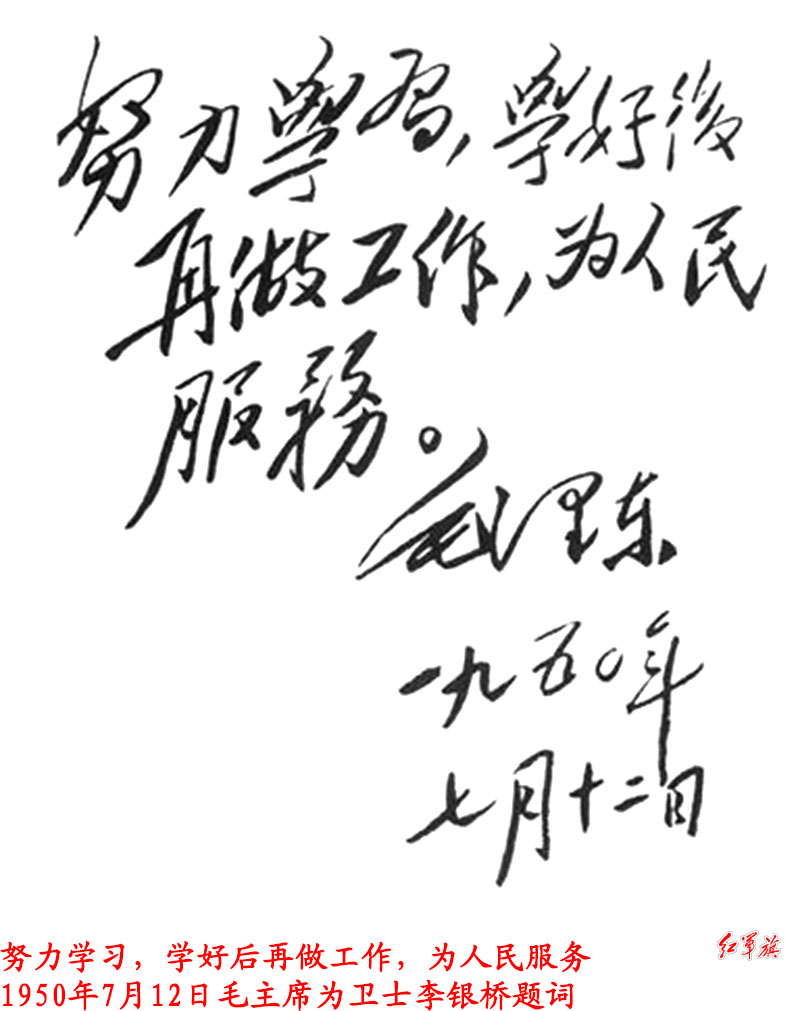 努力學習，學好後
再做工作，为人民
服務。
毛泽东
一九五〇年
七月十二日
努力学习，学好后再做工作，为人民服务
1950年7月12日毛主席为卫士李银桥题词
红军旗